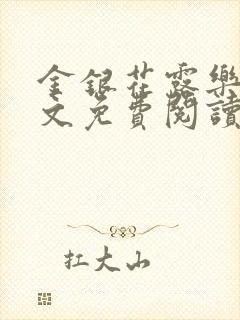 金銀花露樂
文免費閱讀
扛大山